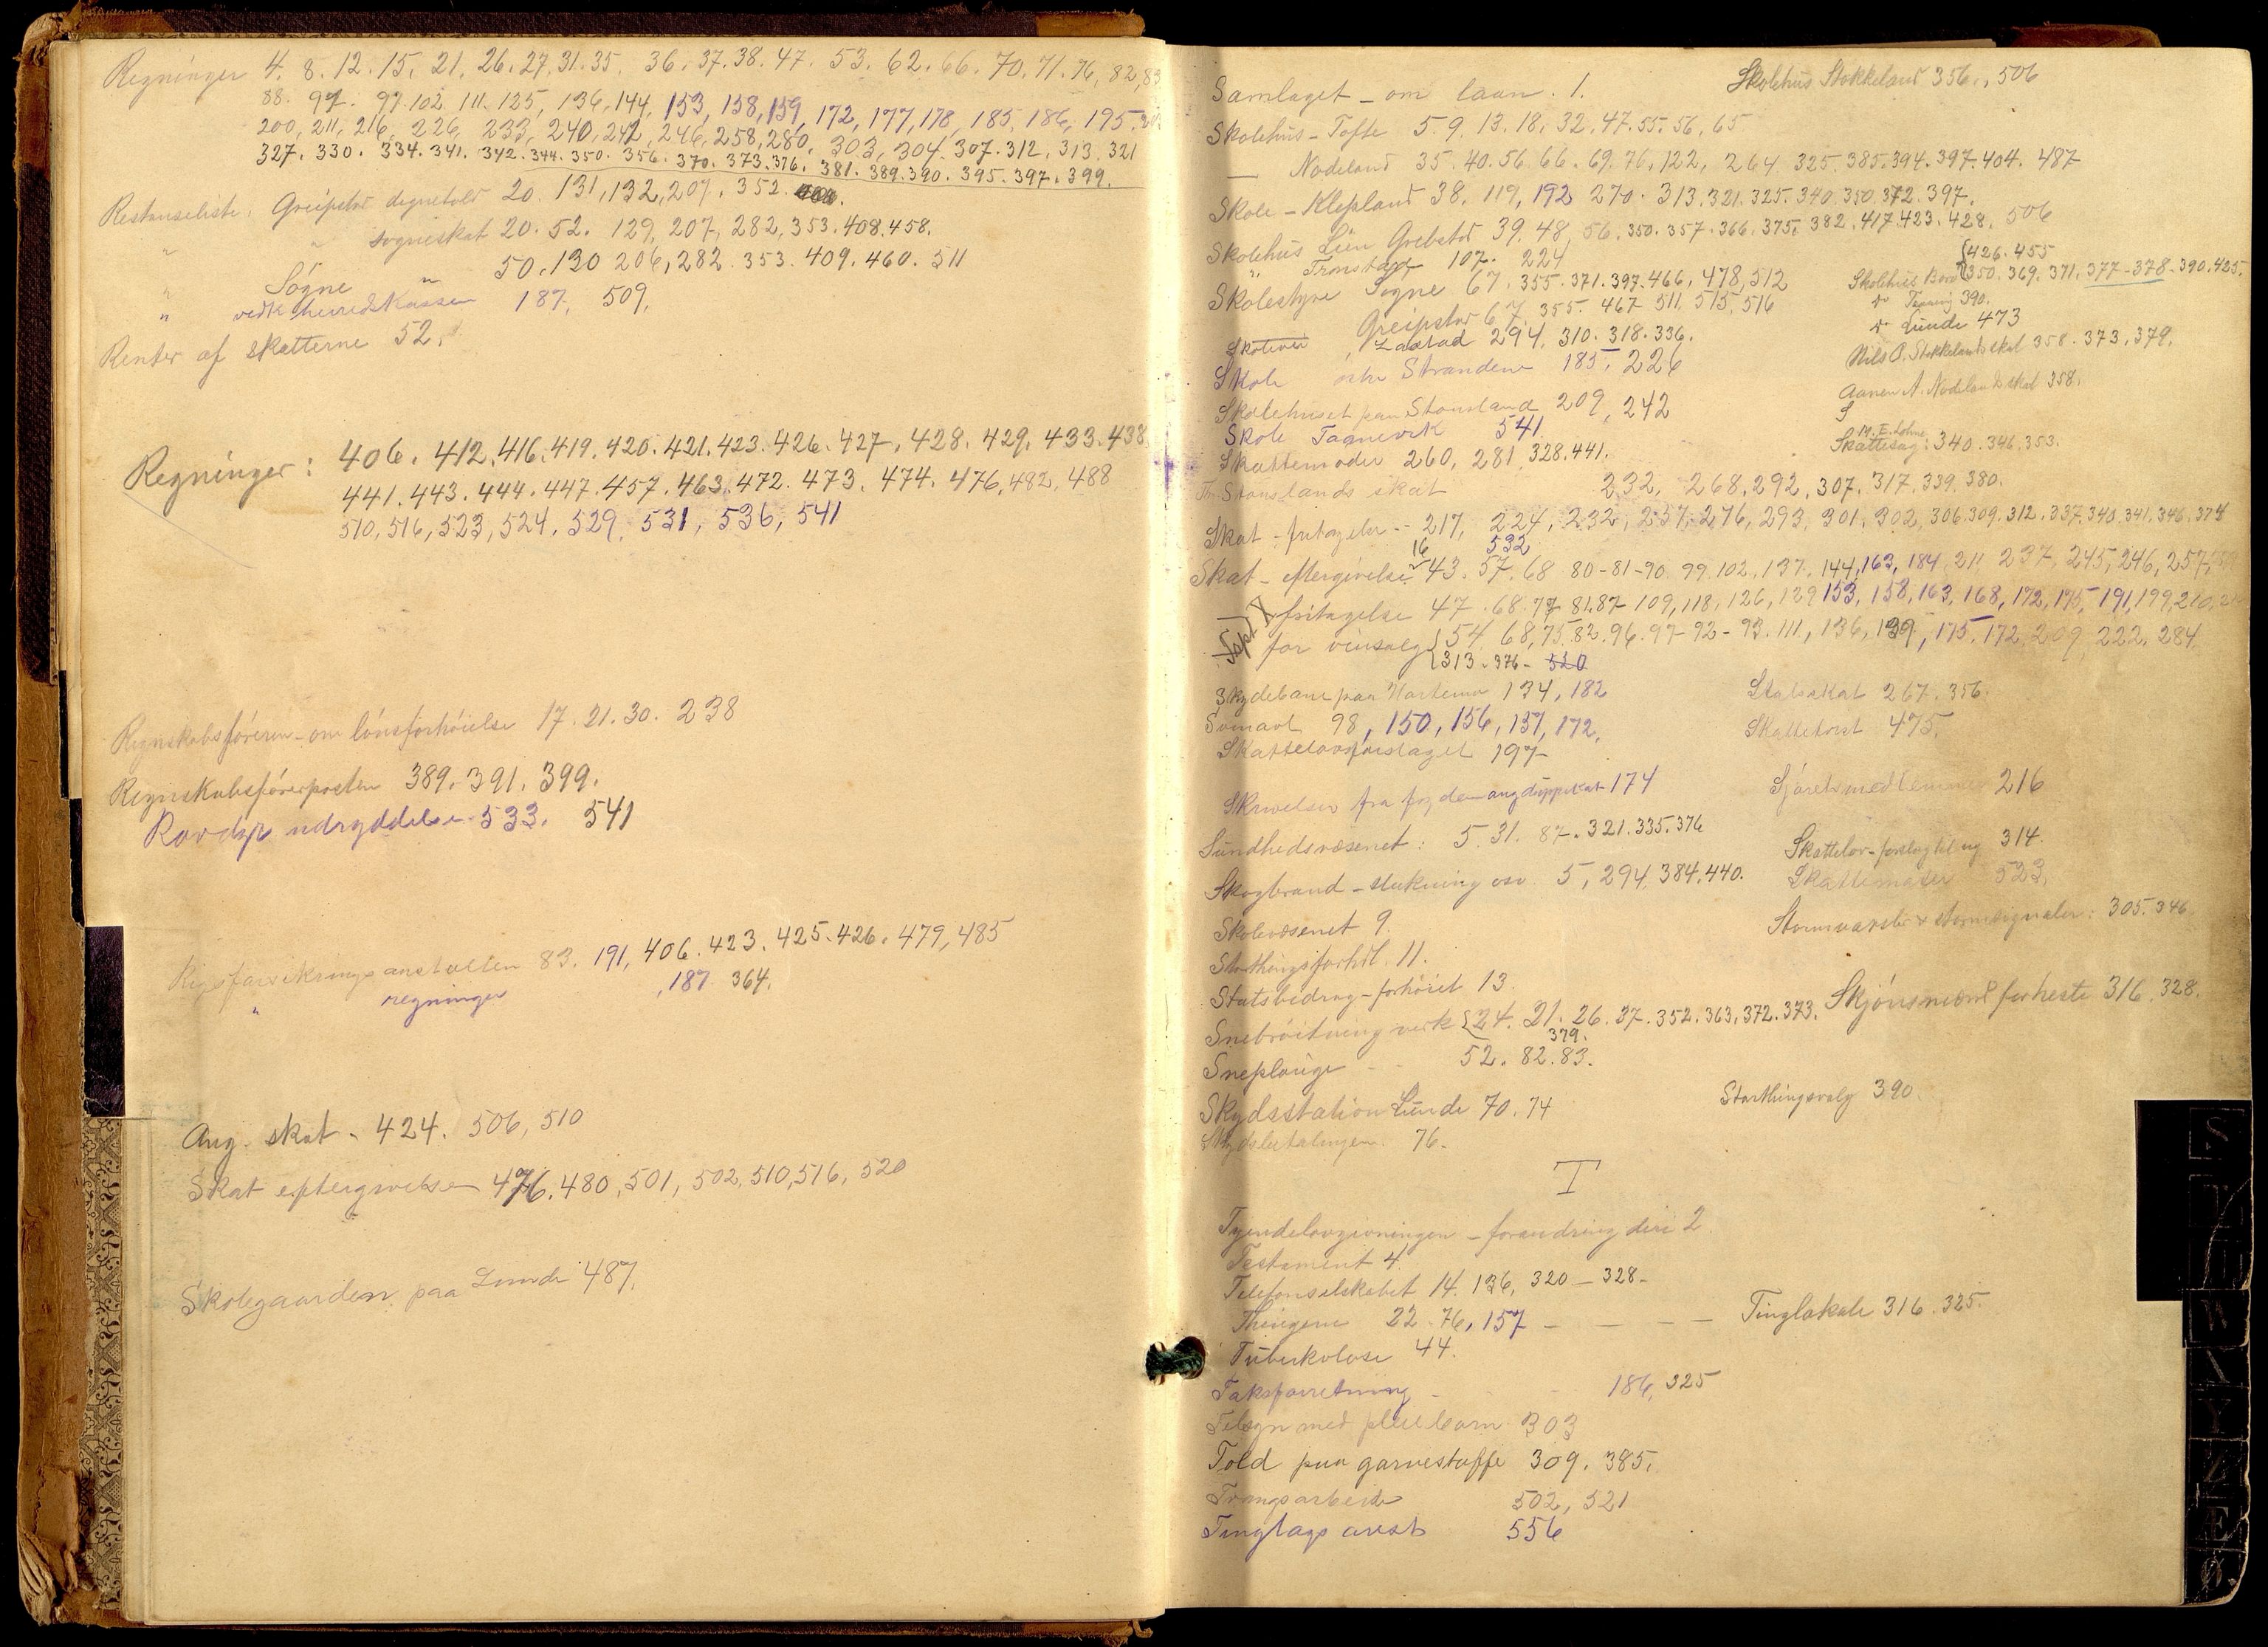 Regninger 4. 8. 12. 15. 21. 26. 27. 31. 35. 36. 37. 38. 47. 53. 62. 66. 70. 71. 76, 82, 83
88. 97. 97. 102 111. 125, 136, 144, 153, 158, 159, 172, 177, 178, 185, 186, 195.
200, 211, 216, 226, 233, 240, 242, 246, 258, 280, 303, 304. 307. 312. 313. 321
327. 330. 334. 341. 342. 344. 350. 356. 370. 373. 376. 381. 389. 390. 395. 397. 399.
Restanseliste. Greipstad degnetold 20. 131, 132, 207, 352.
" " sogneskat 20. 52. 129, 207, 282, 353. 408. 458.
" Søgne " 50. 130 206, 282. 353. 409. 460. 511
" vedk herredskassen 187, 509.
Renter af skatterne 52.
Regninger: 406. 412. 416. 419. 420. 421. 423. 426. 427. 428. 429. 433. 438
441. 443. 444. 447. 457. 463. 472. 473. 474. 476, 482, 488
510, 516, 523, 524, 529, 531, 536, 541
Regnskabsføreren - om lønsforhøielse 17. 21. 30. 238
Regnskabsførerposten 389. 391. 399.
Rovdyr udryddelse 533. 541
Rigsforsikringsanstalten 83. 191, 406. 423. 425. 426. 479, 485
" regninger , 187 364.
Ang. skat - 424. 506, 510
Skat eftergivelse 476. 480, 501, 502, 510, 516, 520
Skolegaarden paa Lunde 487.
Samlaget - om laan. 1.
Skolehus Stokkeland 356., 506
Skolehus - Tofte 5. 9. 13. 18. 32. 47. 55. 56, 65
— Nodeland 35. 40. 56. 66. 69. 76, 122, 264 325. 385. 394. 397. 404. 487
Skole - Klepland 38. 119, 192 270. 313. 321. 325. 340. 350. 372. 397.
Skolehus Lien Grebstad 39. 48, 56. 350. 357. 366. 375. 382. 417. 423. 428. 506
" Tronstad 107. 224
Skolestyre Søgne 67. 355. 371. 397. 466, 478, 512
Greipstad 67. 355. 467 511. 515. 516
294, 310. 318. 336.
Skole Stranden 185, 226
Skolehuset paa Stousland 209, 242
Skole Taanevik 541
Skattemøder 260, 281, 328. 441.
Stouslands skat 232, 268, 292, 307. 317. 339. 380.
{426. 455
{350. 369. 371. 377 - 378 - 390. 425.
390.
Lunde 473
Nils O. Stokkelands skat 358. 373. 379.
Aanen A. Nodeland skat 358.
S
M. E. Lohne
Skattesag: 340. 346. 353.
Skat - fritagelse - 217, 224, 232, 257, 276, 293, 301, 302, 306. 309. 312. 337. 340. 341. 346. 374
16 532
Skat - eftergivelse 43. 57. 68 80-81-90 99. 102, 137, 144, 163, 184, 211, 237, 245, 246, 257,
fritagelse 47. 68. 77. 81. 87 109, 118, 126, 129 153, 158, 163, 168, 172, 175, 191, 199, 210,
for vinsalg {54. 68, 75. 82. 96. 97 - 92 - 93. 111, 136, 139, 175. 172, 209, 222. 284
{313. 376 - 520
Skydebane paa Hortemo 134, 182
Statsskat 267. 356.
98, 150, 156, 157, 172,
Skattetvist 475.
Skattelovforslaget 197
Skrivelser fra fogden 174
Sjøretsmedlemmer 216
Sundhedsvæsenet: 5. 31. 87. 321. 335. 376
Skattelov - forslag til ny 314.
Skogbrand - slukning osv. 5, 294, 384, 440.
Skattemøder 523.
Skolevæsenet 9.
Stormvarsler & stormsignaler: 305. 346.
Storthingsforhdl. 11.
Statsbidrag - forhøiet 13.
Snebrøitning vedk {24. 21. 26. 37. 352. 363, 372. 373. 379.
Skjønsmænd for heste 316, 328.
Sneplouge - - 52. 82. 83.
Skydsstation Lunde 70. 74
Storthingsvalg 390.
Skydsbetalingen. 76.
T
Tyendelovgivningen - forandring deri 2.
Testament 4.
Telefonselskabet 14. 136, 320 - 328 -
Thingene 22. 76, 157 — — — —
Tinglokale 316. 325.
Tuberkulose 44.
Taksforretning - - 186, 325
Tilsyn med pleiebarn 303
Told paa garvestoffe 309. 385.
Trangsarbeide 502, 521
Tinglags arest 556
S
T
U
V
W
X
Y
Z
Æ
Ø